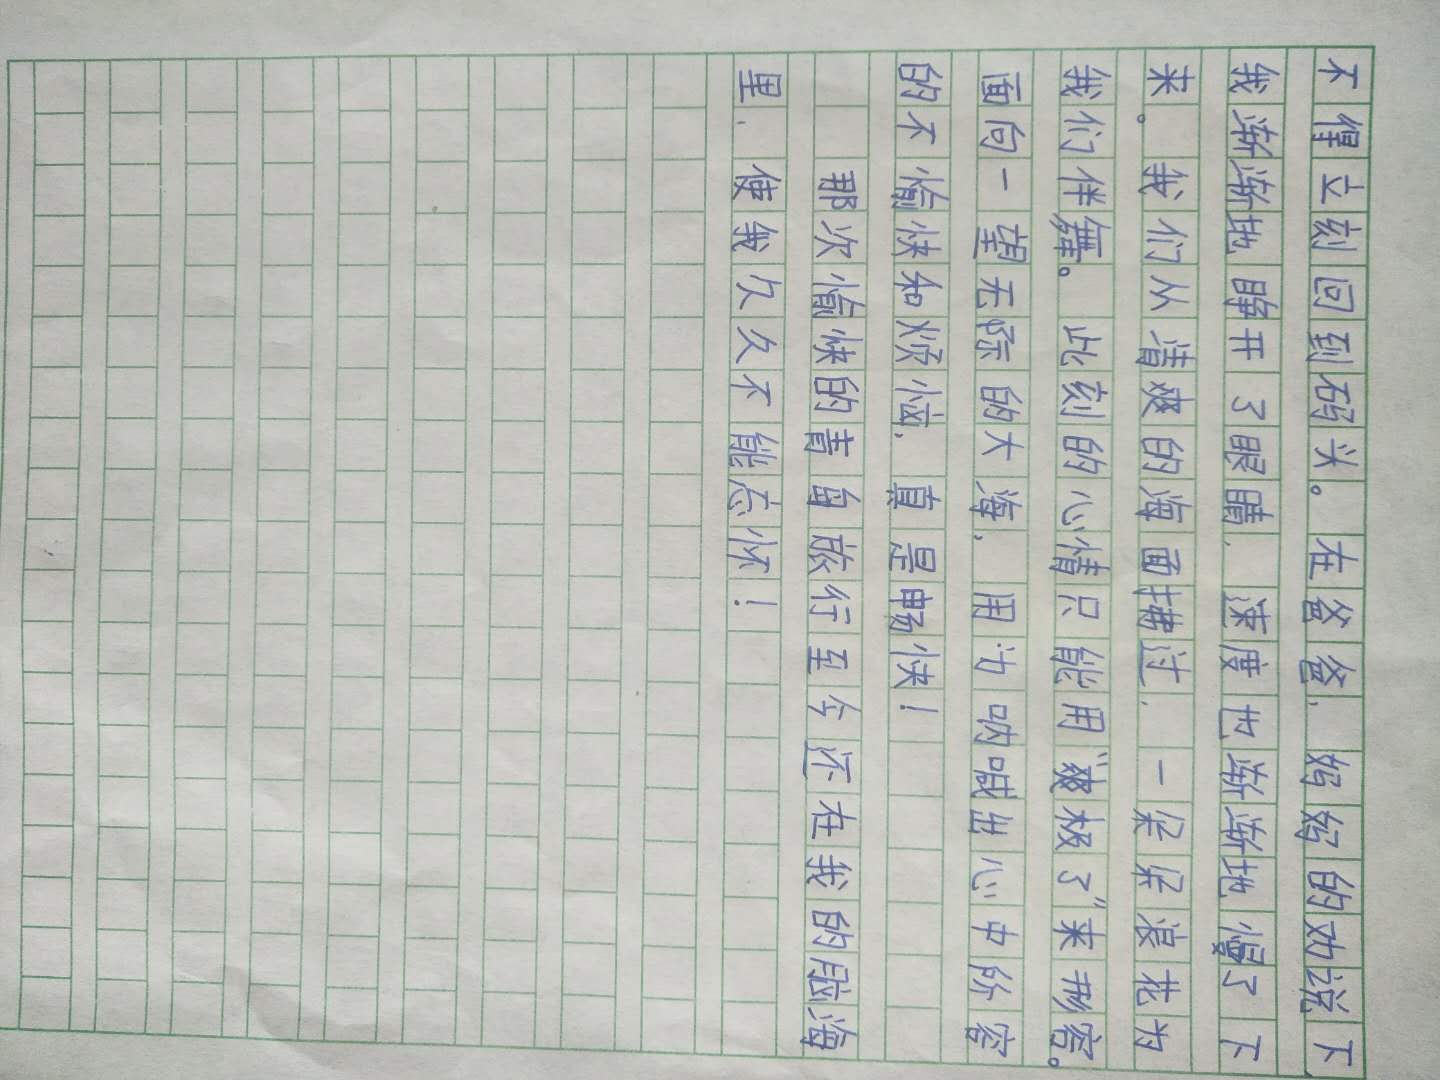 不得立刻回到码头。在爸爸，妈妈的劝说下
我渐渐地睁开了眼睛，速度也渐渐地慢了下
来。我们从清爽的海面拂过，一朵朵浪花为
我们伴舞。此刻的心情只能用“爽极了”来形容。
面向一望无际的大海，用力呐喊出心中所
的不愉快和烦恼，真是畅快！
那次愉快的青岛旅行至今还在我的脑海
里，使我久久不能忘怀！